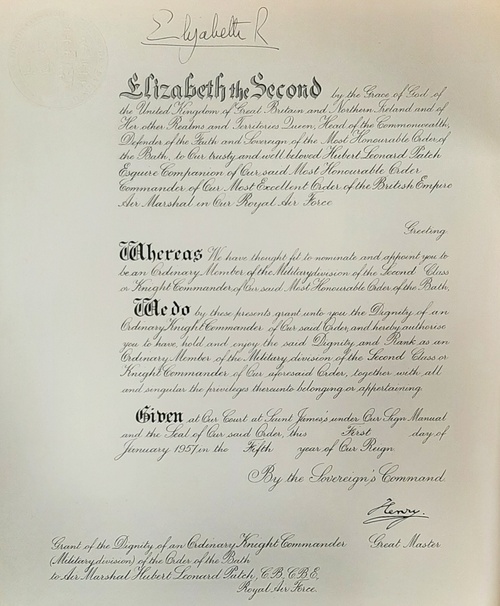 Elizabeth R
Elizabeth the Second by the Grace of God of
the United Kingdom of Great Britain and Northern Ireland and of
Her other Realms and Territories Queen, Head of the Commonwealth,
Defender of the Faith and Sovereign of the Most Honourable Order of
the Bath, to Our trusty and well beloved Hubert Leonard Patch
Esquire Companion of Our said Most Honourable Order
Commander of Our Most Excellent Order of the British Empire
Air Marshal in Our Royal Air Force
Greeting
Whereas We have thought fit to nominate and appoint you to
be an Ordinary Member of the Military division of the Second Class
or Knight Commander, of Our said Most Honourable Order of the Bath,
We do by these presents grant unto you the Dignity of an
Ordinary Knight Commander of Our said Order, and hereby authorise
you to have, hold and enjoy the said Dignity and Rank as an
Ordinary Member of the Military division of the Second Class or
Knight Commander of Our aforesaid Order, together with all
and singular the privileges thereunto belonging or appertaining.
Given at Our Court at Saint James's under Our Sign Manual
and the Seal of Our said Order, this First day of
January 1957, in the Fifth year of Our Reign.
By the Sovereign's Command
Henry.
Great Master
Grant of the Dignity of an Ordinary Knight Commander
(Military division) of the Order of the Bath
to Air Marshal Hubert Leonard Patch, C.B., C.B.E,
Royal Air Force.